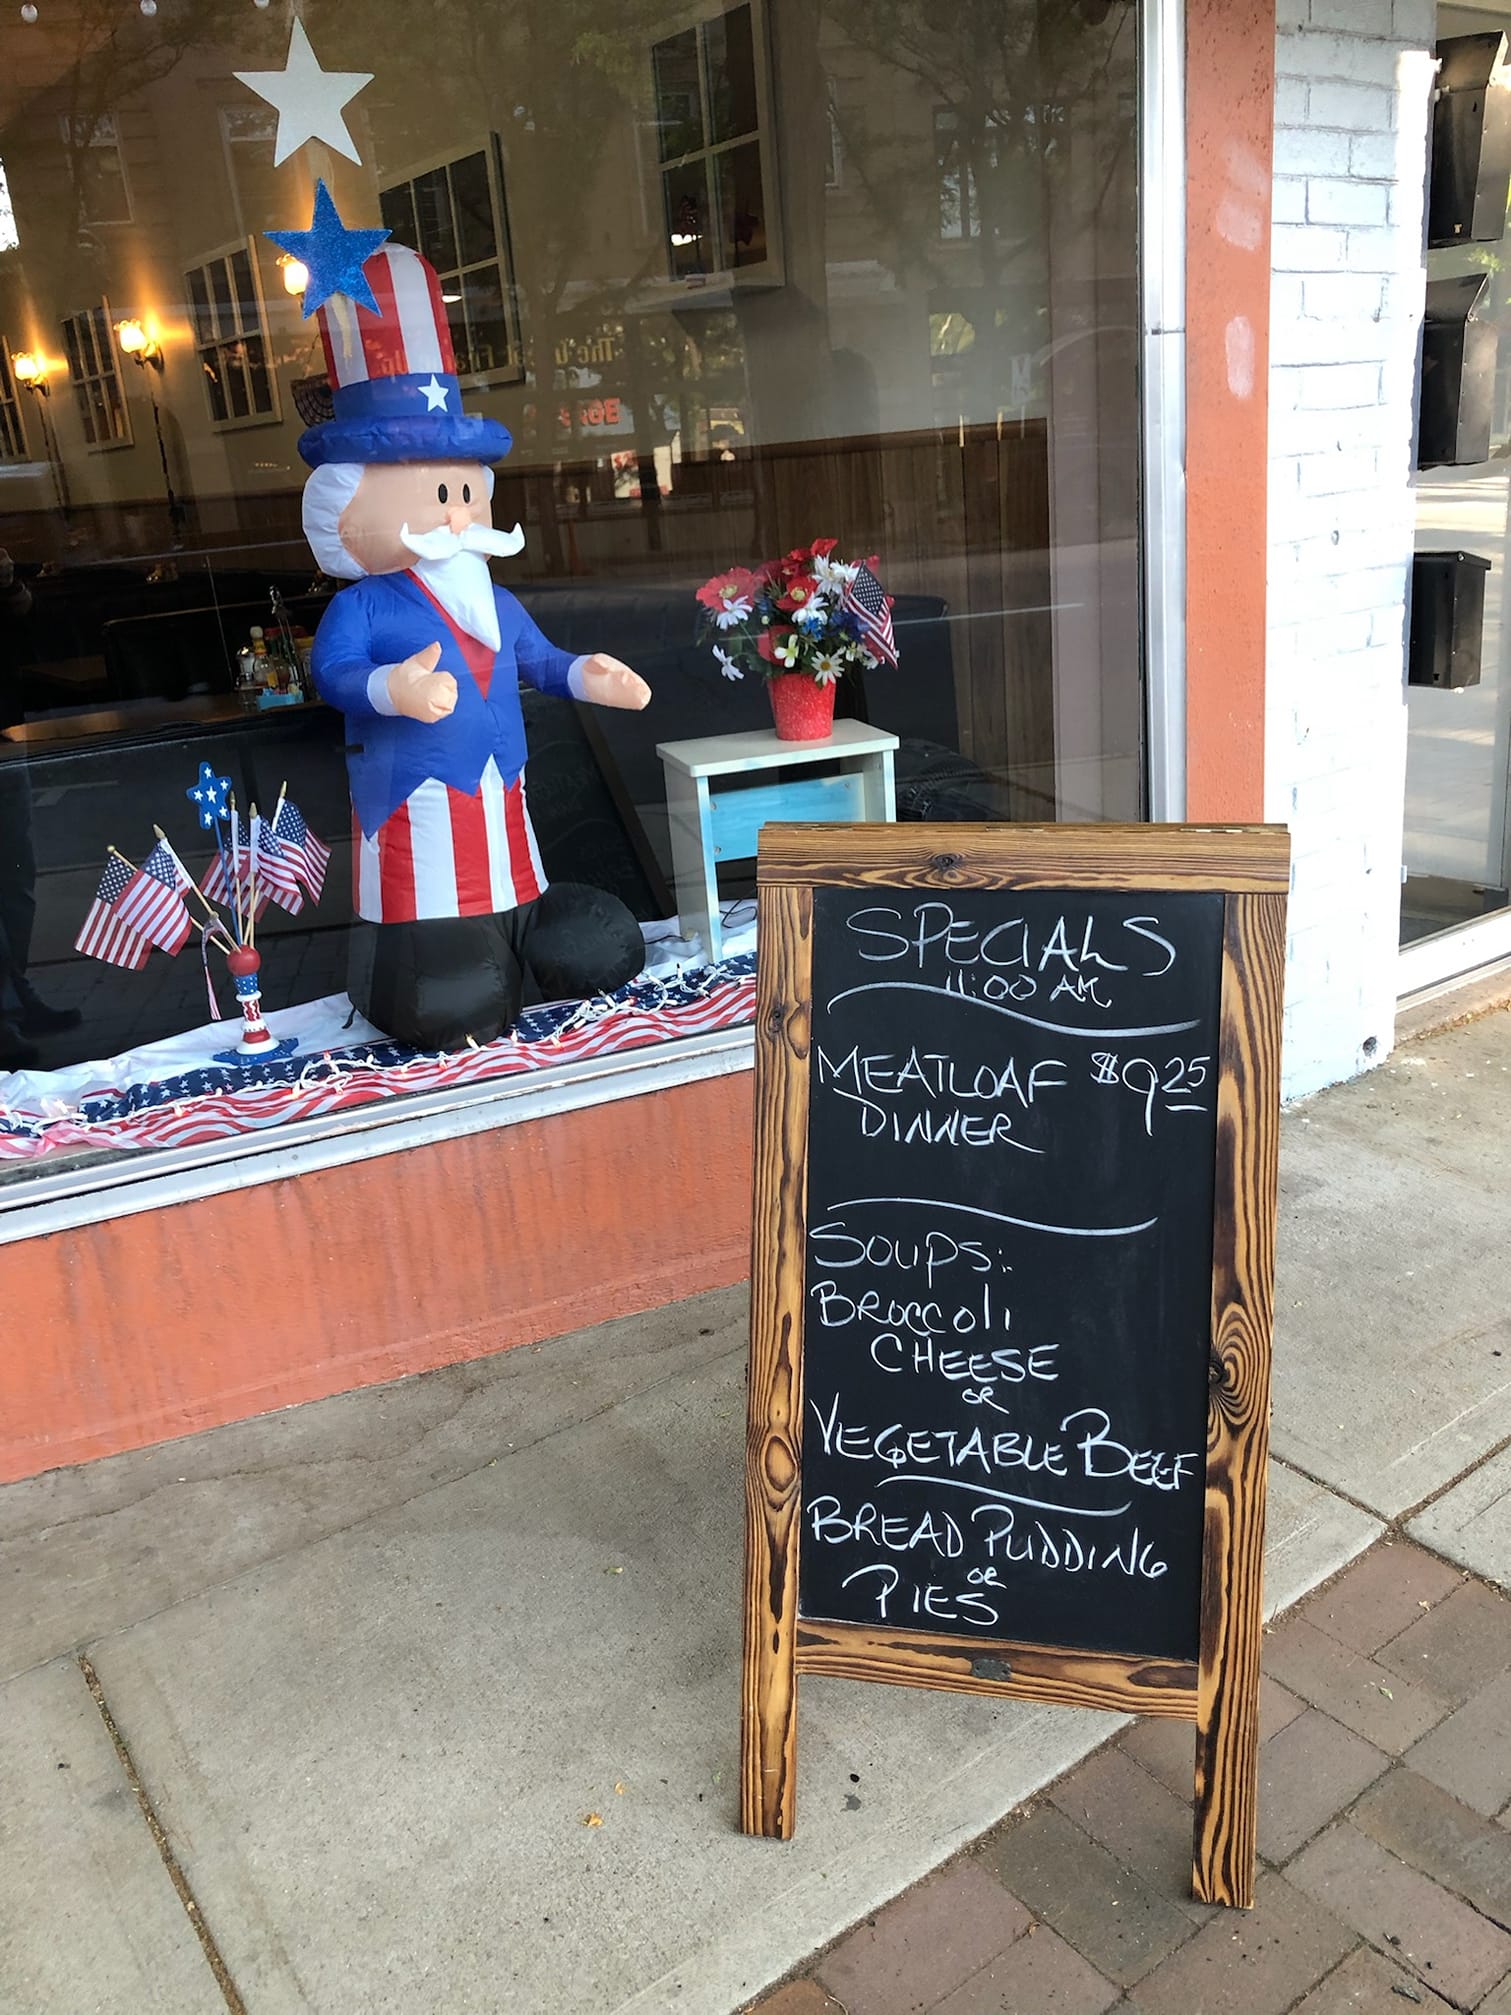 SPECIALS
11:00 AM
MEATLOAF $9.25
DINNER
SOUPS:
BROCCOLI
CHEESE
OR
VEGETABLE BEEF
BREAD PUDDING
OR
PIES